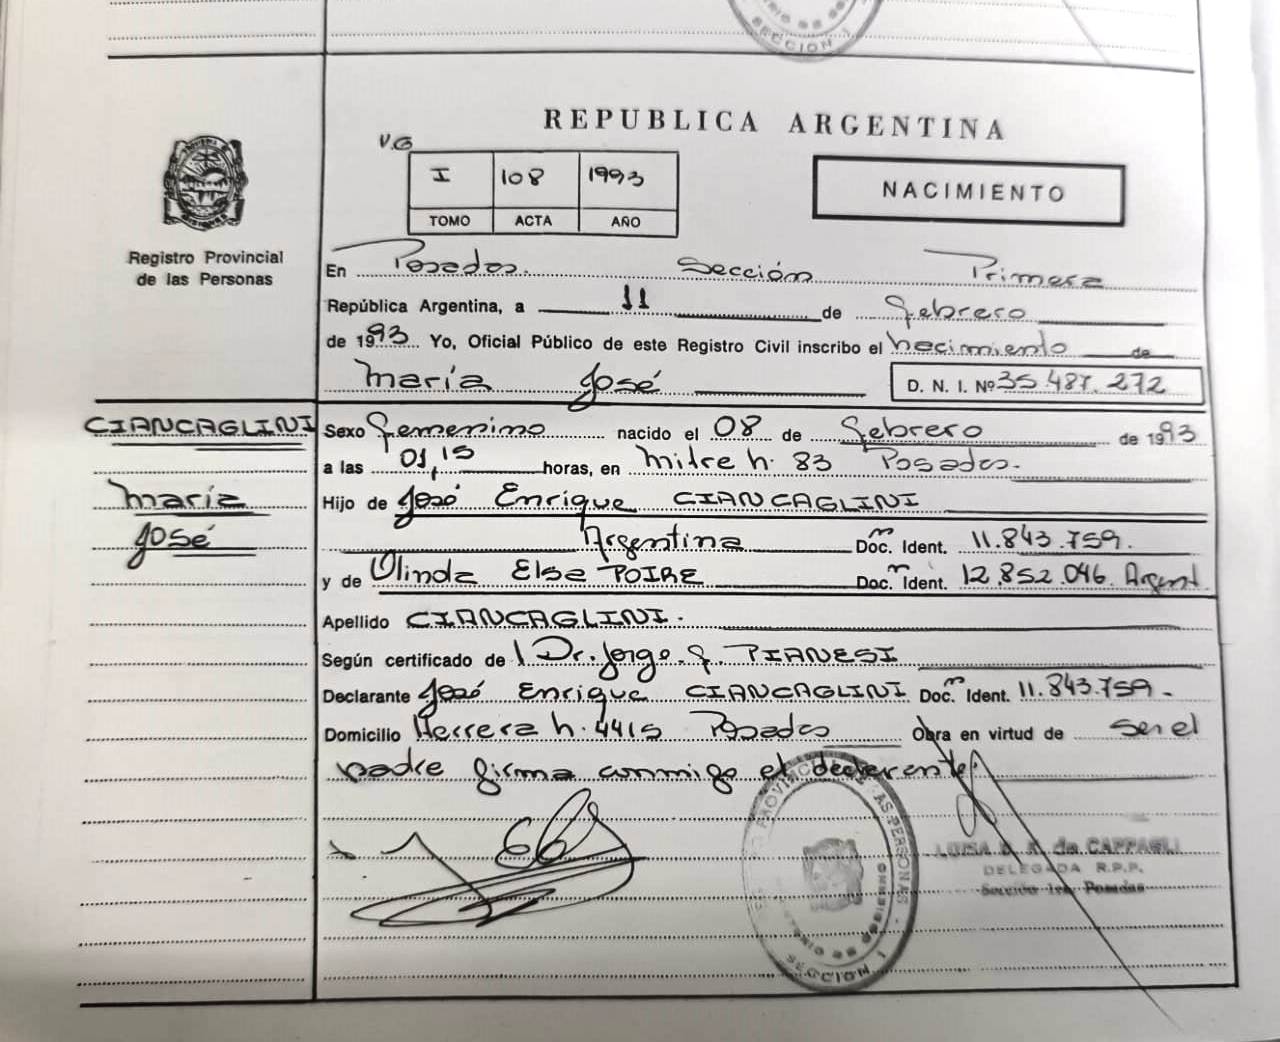 SECCION 1
REPUBLICA ARGENTINA
V.G
I 108 1993
TOMO ACTA AÑO
NACIMIENTO
Registro Provincial
de las Personas
En Posadas. Sección Primera
República Argentina, a 11 de febrero
de 1993 Yo, Oficial Público de este Registro Civil inscribo el nacimiento de
María José D. N. I. Nº 35.487.272
CIANCAGLINI
María
José
Sexo femenino nacido el 08 de febrero de 1993
a las 01,15 horas, en Mitre n. 83 Posadas.
Hijo de José Enrique CIANCAGLINI
Argentina Doc. Ident. m 11.843.759.
y de Olinda Elsa POIRE Doc. Ident. m 12.852.046. Argent.
Apellido CIANCAGLINI.
Según certificado de Dr. Jorge. PIANESI
Declarante José Enrique CIANCAGLINI Doc. Ident. m 11.843.759.
Domicilio Herrera n. 4415 Posadas Obra en virtud de ser el
padre firma conmigo el declarante.
PROVINCIAL DE LAS PERSONAS
SECCION 1
LUISA de CAPPAGLI
DELEGADA R.P.P.
Sección 1ra Posadas